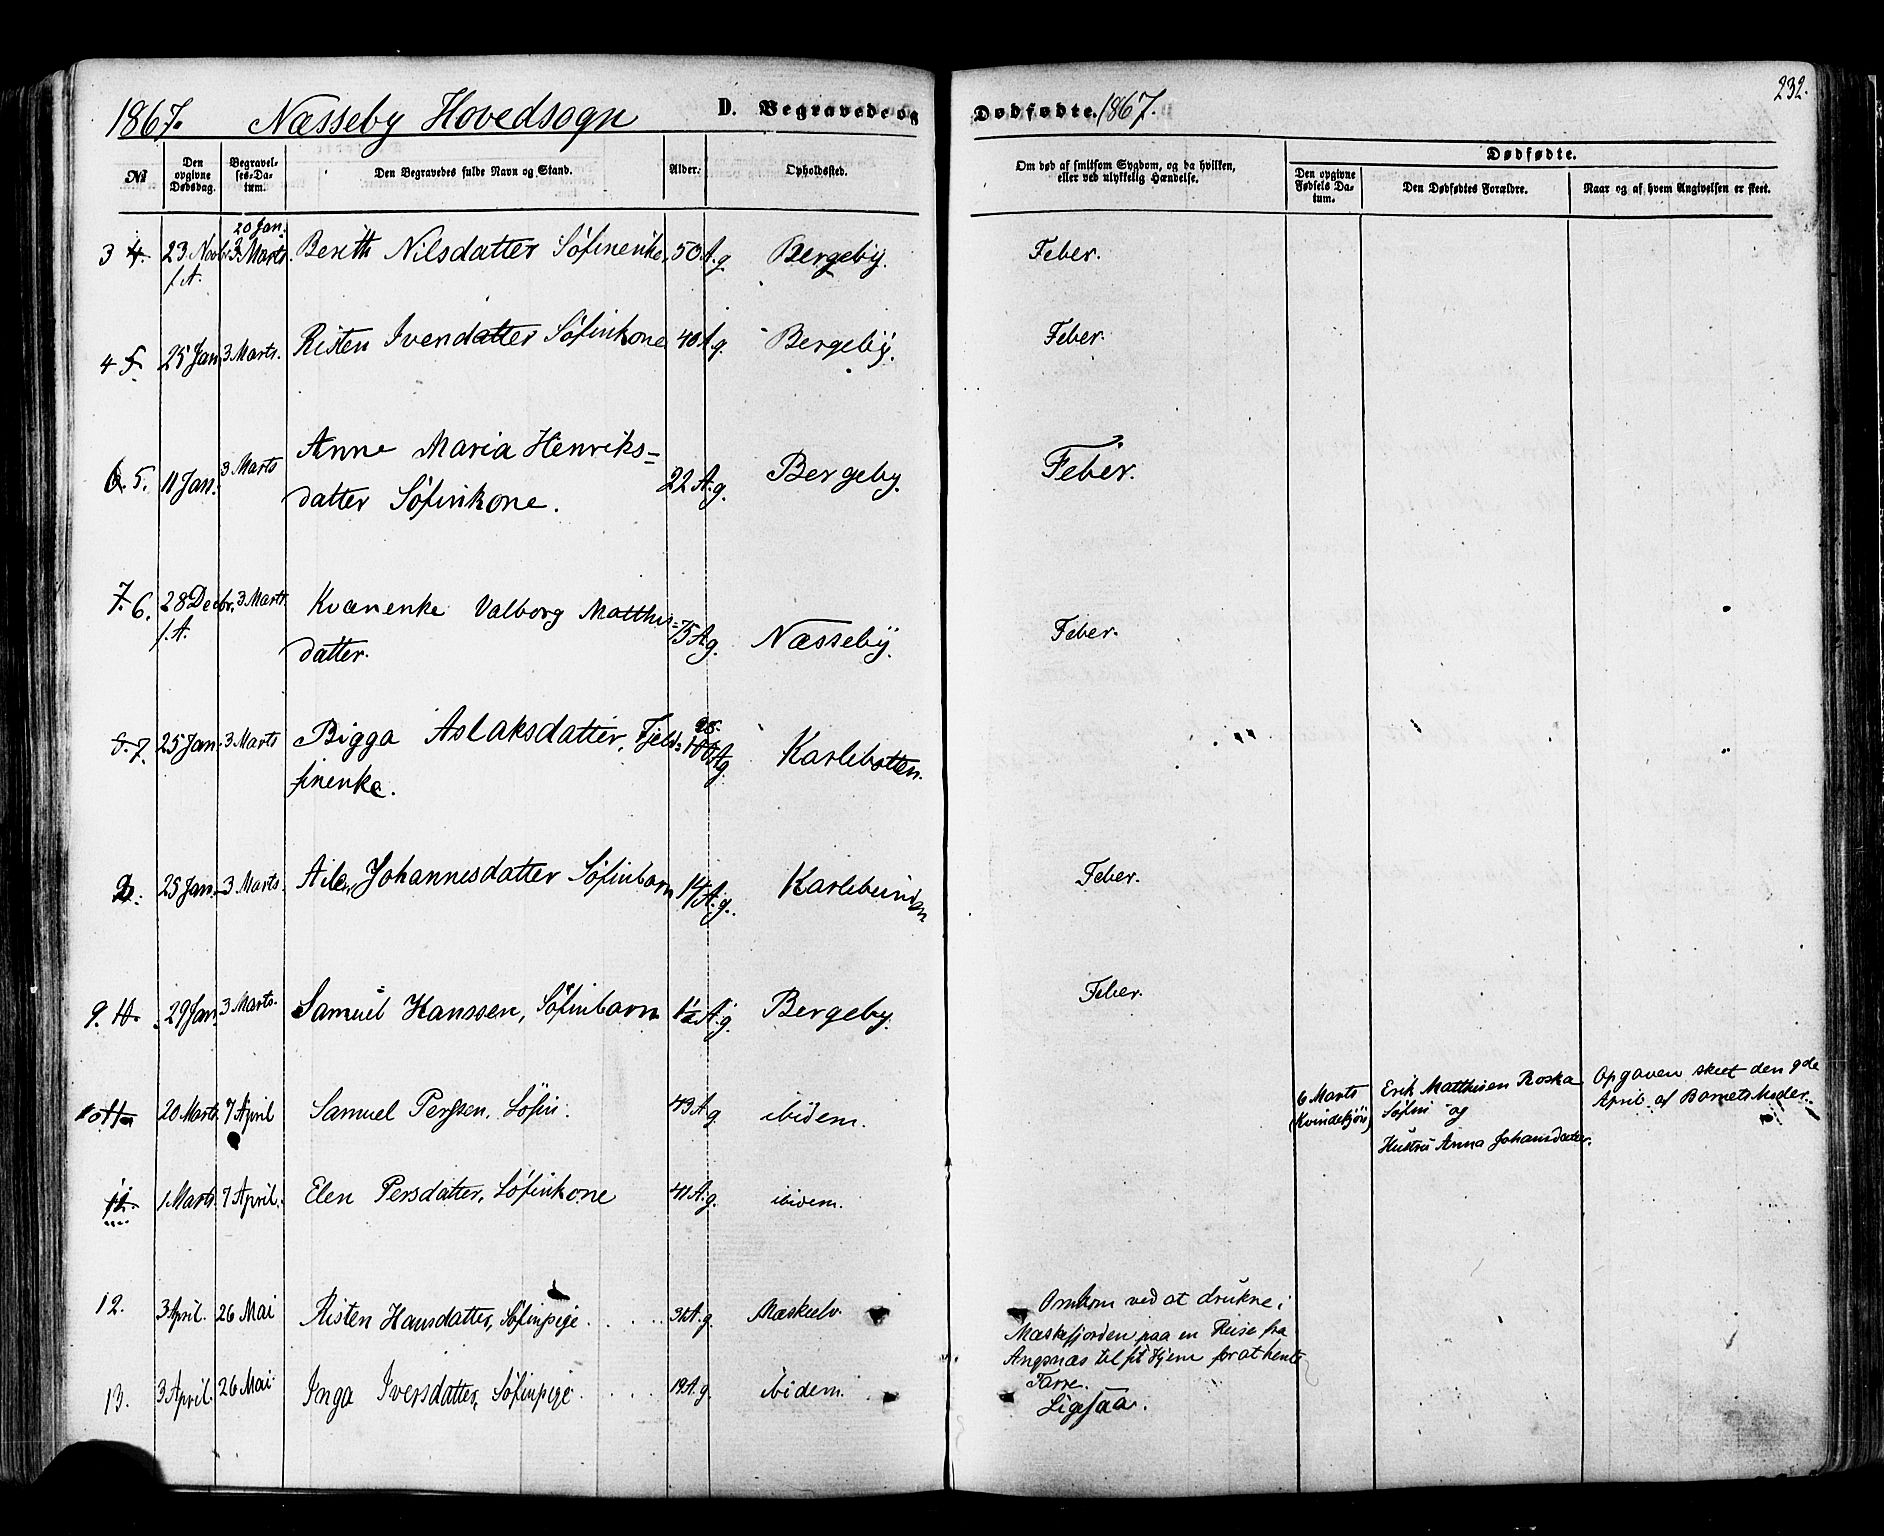 232.
1867. Næsseby Hovedsogn D. Begravede og Dødfødte. 1867.
No
Den opgivne Dødsdag.
Begravelses-Datum.
Den Begravedes fulde Navn og Stand.
Alder.
Opholdssted.
Om død af smitsom Sygdom, og da hvilken, eller ved ulykkelig Hændelse.
Dødfødte.
Den opgivne Fødsels Datum.
Den Dødfødtes Forældre.
Naar og af hvem Angivelsen er skeet.
20 Jan.
3 4. 23 Novbr 3 Marts. Berith Nilsdatter Søfinenke, 50 A. g. Bergeby. Feber.
f. A.
4 5. 25 Jan 3 Marts. Risten Ivendatter Søfinkone 40 A. g. Bergeby. Feber.
6. 5. 11 Jan. 3 Marts Anne Maria Henriks=
datter Søfinkone. 22 A. g. Bergeby. Feber.
7. 6. 28 Decbr. 3 Marts Kvænenke Valborg Matthis=
f. A. datter. 75 A g. Næsseby. Feber.
8. 7. 25 Jan. 3 Marts Bigga Aslaksdatter, Fjeld= 100 A g. Karlebotten.
finenke.
25 Jan. 3 Marts. Johannesdatter Søfinbarn 14 A. g. Karlebunden Feber.
9. 10. 29 Jan. 3 Marts. Samuel Hanssen, Søfinbarn 1/2 A. g. Bergeby. Feber.
10 11 20 Marts 7 April Samuel Perssen, Søfin. 43 A g. ibidem. 6 Marts Erik Matthisen Roska Opgaven skeet den 9de
(Kvindekjøn) Søfin og April af Barnets Moder.
Hustru Anna Johansdatter.
11 1 Marts. 7 April. Elen Persdatter, Søfinkone 41 A. g. ibidem.
12. 3 April. 26 Mai Risten Hansdatter, Søfinpige. . . . . A. g. Mæskelv Omkom ved at drukne i
Mæskefjorden paa en Reise fra
Angsnæs til sit Hjem for at hente
Tarre.
13. 3 April. 26 Mai. Inga Iversdatter, Søfinpige. . . . 19 A. g. ibidem. Ligesaa.